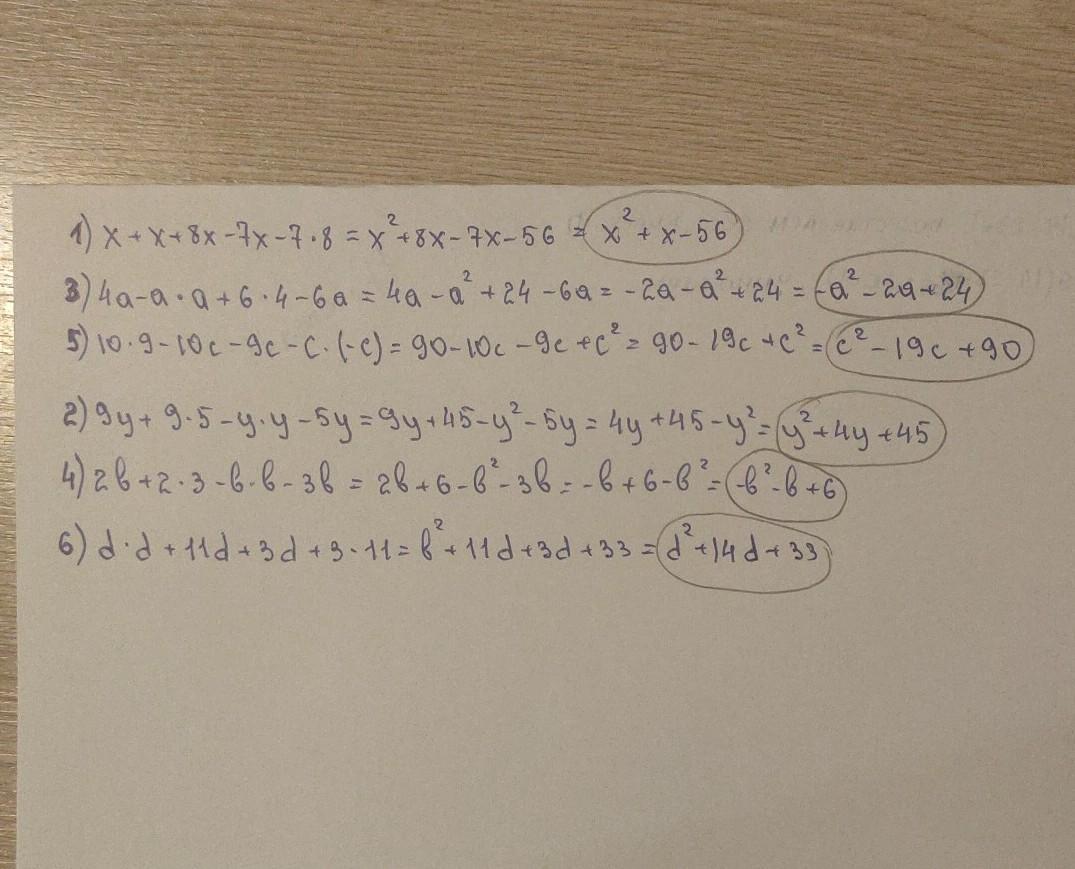 1) x + x + 8x - 7x - 7 · 8 = x² + 8x - 7x - 56 = x² + x - 56
3) 4a - a · a + 6 · 4 - 6a = 4a - a² + 24 - 6a = -2a - a² + 24 = -a² - 2a + 24
5) 10 · 9 - 10c - 9c - c · (-c) = 90 - 10c - 9c + c² = 90 - 19c + c² = c² - 19c + 90
2) 9y + 9 · 5 - y · y - 5y = 9y + 45 - y² - 5y = 4y + 45 - y² = y² + 4y + 45
4) 2b + 2 · 3 - b · b - 3b = 2b + 6 - b² - 3b = -b + 6 - b² = -b² - b + 6
6) d · d + 11d + 3d + 3 · 11 = b² + 11d + 3d + 33 = d² + 14d + 33